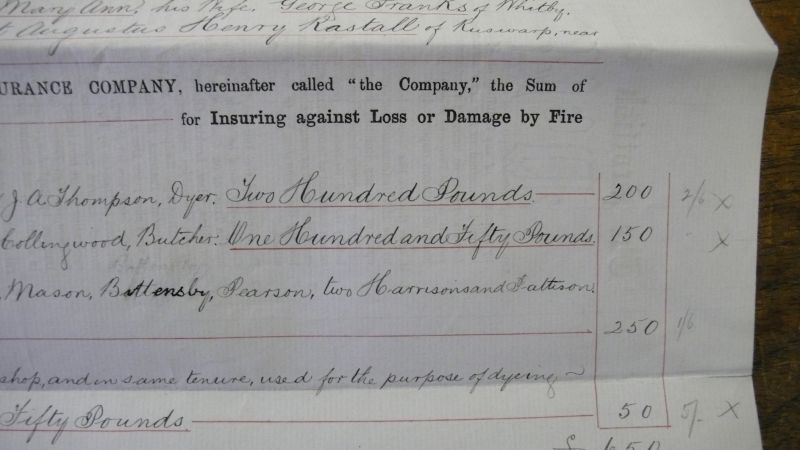 Mary Ann, his Wife. George Franks of Whitby.
Augustus Henry Rastall of Ruswarp, near
URANCE COMPANY, hereinafter called "the Company," the Sum of
for Insuring against Loss or Damage by Fire
J. A. Thompson, Dyer. Two Hundred Pounds 200 2/6 X
Collingwood, Butcher. One Hundred and Fifty Pounds. 150 " X
Mason, Battensby, Pearson, two Harrisons and Pattison.
250 1/6
shop, and in same tenure, used for the purpose of dyeing ~
Fifty Pounds 50 5/- X
£ 650